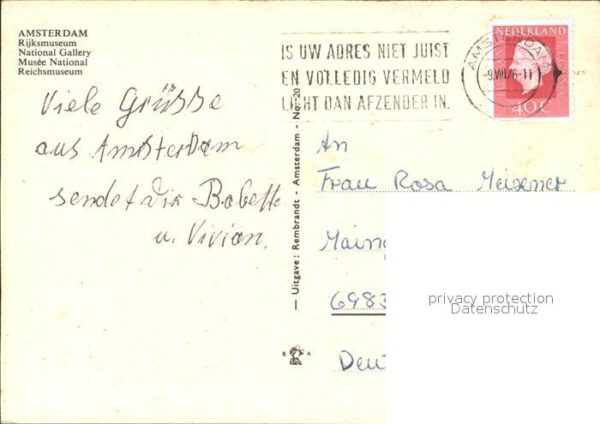 AMSTERDAM
Rijksmuseum
National Gallery
Musée National
Reichsmuseum
Viele Grüsse
aus Amsterdam
sendet dir Babette
u. Vivian.
— Uitgave: Rembrandt - Amsterdam - No. 20
R A
IS UW ADRES NIET JUIST
EN VOLLEDIG VERMELD
LICHT DAN AFZENDER IN.
AMSTERDAM
-9.VII.76-11
NEDERLAND
40c
An
Frau Rosa Meixner
Maing
6983
Deu
privacy protection
Datenschutz